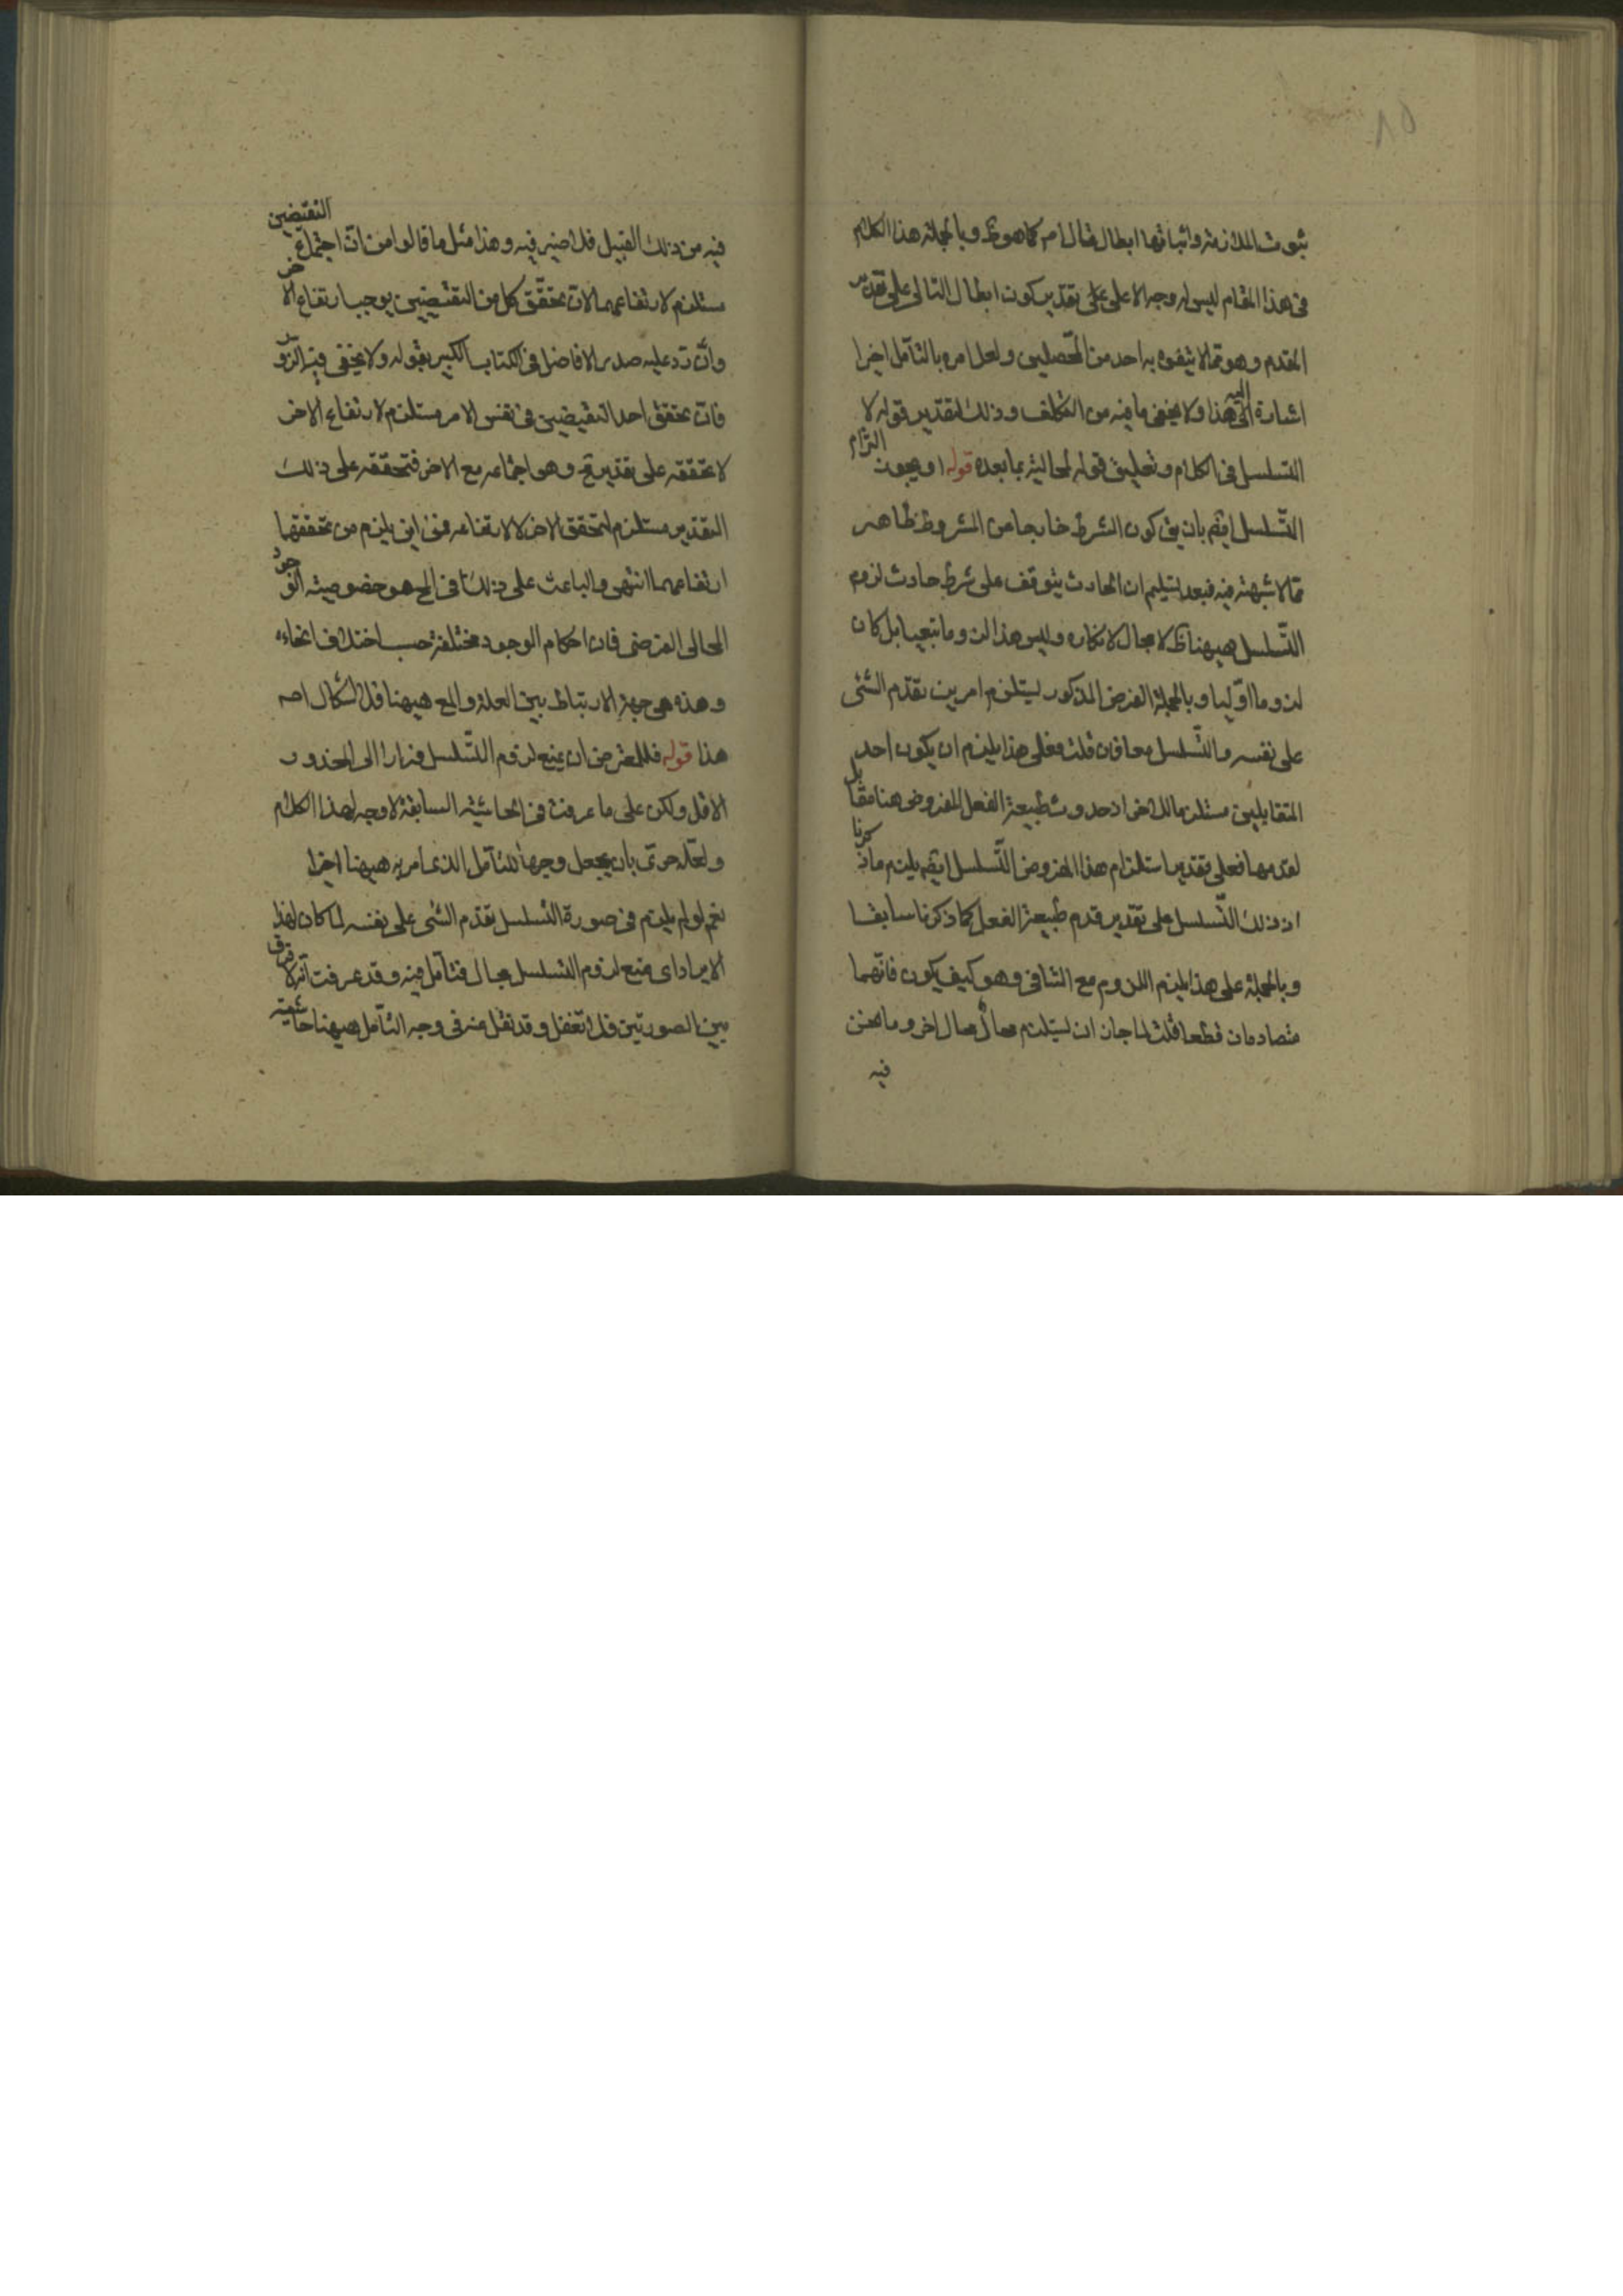 ثبوت الملازمة واثباتها ابطال فقال ام كما هو ظ وبالجملة هذا الكلام
فى هذا المقام ليس له وجه الا على على تقدير كون ابطال التالى على تقدير
المقدم وهو مما لا يتفوه به احد من المحصلين ولعل امره بالتأمل اخيرا
اشارة الى هذا ولا يخفى ما فيه من التكلف وذلك لتقدير قوله لا
التسلسل فى الكلام وتعليق قوله لمحاليته بما بعده قوله او يجوز التزام
التسلسل ايضم بان يق كون الشرط خارجا من المشروط ظاهر
مما لا شبهة فيه فبعد تسليم ان الحادث يتوقف على شرط حادث لزوم
التسلسل هيهنا ظ لا مجال لانكاره وليس هذا لزوما تبعيا بل كان
لزوما اوليا وبالجملة الفرض المذكور ليستلزم امرين تقدم الشئ
على نفسه والتسلسل معا فان قلت فعلى هذا يلزم ان يكون احد
المتقابلين مستلزما للاخر اذ حدوث طبيعة الفعل المفروض هنا مقابل
لقدمها فعلى تقدير استلزام هذا المفروض التسلسل ايضم يلزم ما ذكرنا
اذ ذلك التسلسل على تقدير قدم طبيعة الفعل كما ذكرنا سابقا
وبالجملة على هذا يلزم اللزوم مع التنافى وهو كيف يكون فانهما
متصادمان قطعا قلت لما جاز ان ليستلزم محال محال اخر وما نحن
فيه
فيه من ذلك القبيل فلا ضير فيه وهذا مثل ما قالوا من ان اجتماع النقيضين
مستلزم لارتفاعهما لان تحقق كل من النقيضين يوجب ارتفاع الاخر
وان رد عليه صدر الافاضل فى الكتاب الكبير بقوله ولا يخفى فيه
فان تحقق احد النقيضين فى نفس الامر مستلزم لارتفاع الاخر
لا تحققه على تقدير مح وهو اجتماعه مع الاخر فتحققه على ذلك
التقدير مستلزم لتحقق الاخر لا لارتفاعه فمن اين يلزم من تحققهما
ارتفاعهما انتهى والباعث على ذلك فى المح هو خصوصية الوجود
المحالى الفرضى فان احكام الوجود مختلفة حسب اختلاف انحاءه
وهذه هى جهة الارتباط بين العلة والمع هيهنا فلا اشكال اصه
هذا قوله فللمعترض ان يمنع لزوم التسلسل فرارا الى المحذور
الاول ولكن على ما عرفت فى الحاشية السابقة لا وجه لهذا الكلام
ولعله حرى بان يجعل وجها للتأمل الذى امر به هيهنا اخيرا
نعم لو لم يلزم فى صورة التسلسل تقدم الشئ على نفسه لما كان لهذا
الايراد اى منع لزوم التسلسل مجال فتأمل فيه وقد عرفت انه لا فرق
بين الصورتين فلا تغفل وقد نقل منه فى وجه التأمل هيهنا حاشية